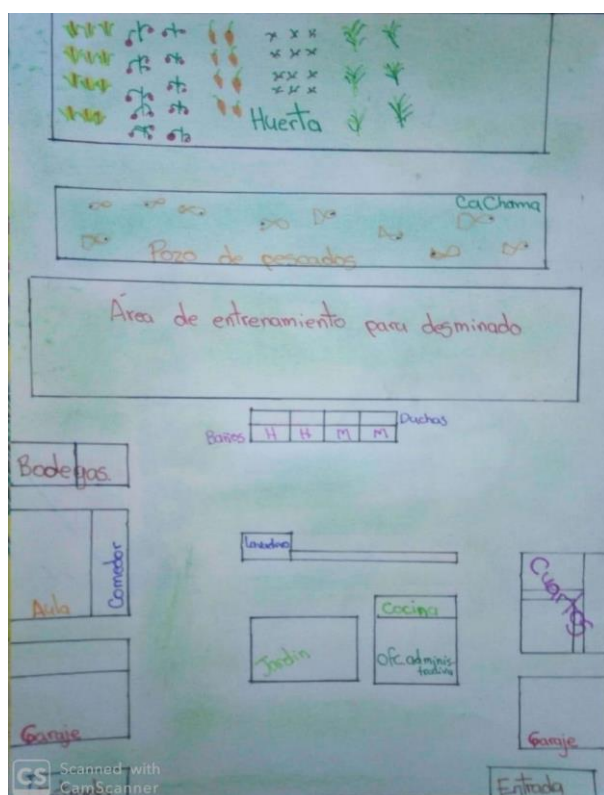 Huerta
CaChama
Pozo de pescados
Área de entrenamiento para desminado
Duchas
Baños H H M M
Bodegas.
Lavadero
Comedor
Cuartos
Aula
Cocina
Jardin
Ofc. adminis-
trativa
Garaje
Garaje
Entrada
CS Scanned with
CamScanner